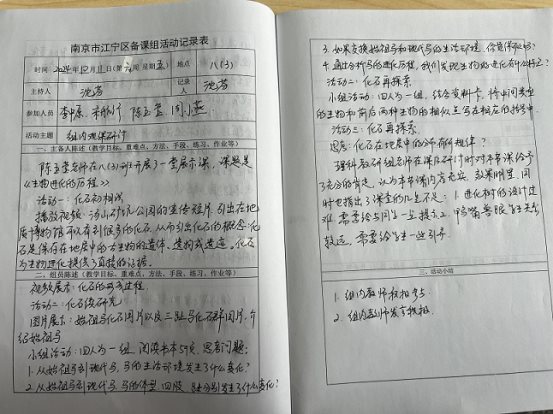 南京市江宁区备课组活动记录表
时间 2024年12月11日(第 周 星期三) 地点 八(3)
主持人 沈芳 记录人 沈芳
参加人员 李 宋 陈玉莹 周小燕
活动主题 组内观课研讨
一、主备人陈述(教学目标、重难点、方法、手段、练习、作业等)
陈玉莹老师在八(3)班开展了一堂展示课,课题是
《生物进化的历程》
活动一:化石初相识
播放视频:汤山矿坑公园的宣传短片,引出在地
质博物馆可以看到很多的化石,从而引出化石的概念:化
石是保存在地层中的古生物的遗体、遗物或遗迹,化石
为生物进化提供了直接的证据。
二、组员陈述(教学目标、重难点、方法、手段、练习、作业等)
视频展示:化石的形成过程
活动二:化石深研究
图片展示:始祖马化石图片以及三趾马化石群图片,介
绍始祖马
小组活动:四人为一组,阅读书本57页,思考问题:
1.从始祖马到现代马,马的生活环境发生了什么变化?
2.从始祖马到现代马,马的体型、四肢、趾分别发生了什么变化?
3.如果交换始祖马和现代马的生活环境,你觉得 吗?
4.通过分析马的进化历程,我们发现生物的进化有什么特点?
活动三:化石再探索
小组活动:四人为一组,结合资料卡,将中间类型
的生物和前后两种生物的相似点写在相应的括号中.
活动三:化石再探索
思考:化石在地层中的分布有何规律?
教研组老师在课后研讨时对本节课给予
了充分的肯定,认为本节课内容充实,效果明显,同
时也指出了课堂的几点不足:1.进化树的设计过
难,需要给与同学一定提示 2.鸭嘴兽跟学生关系
较远,需要给学生一些引导.
三、活动小结
1.组内教师积极参与.
2.组内教师发言积极.